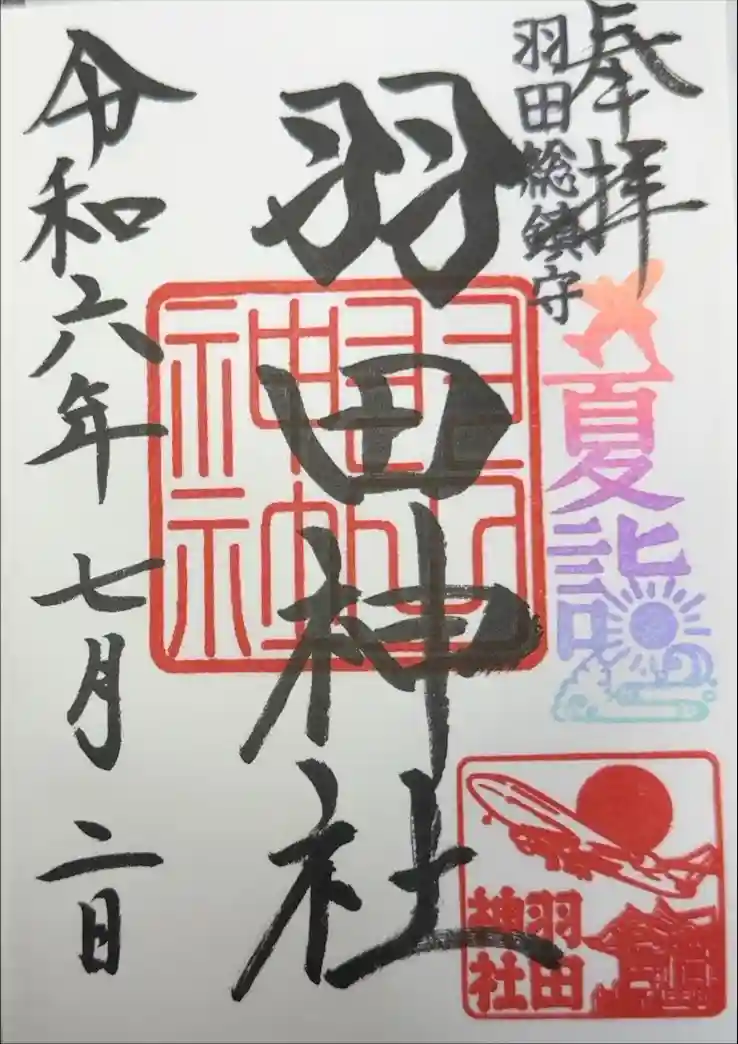 奉拝
羽田総鎮守
夏詣
羽田神社
羽田神社
羽田
神社
令和六年七月二日